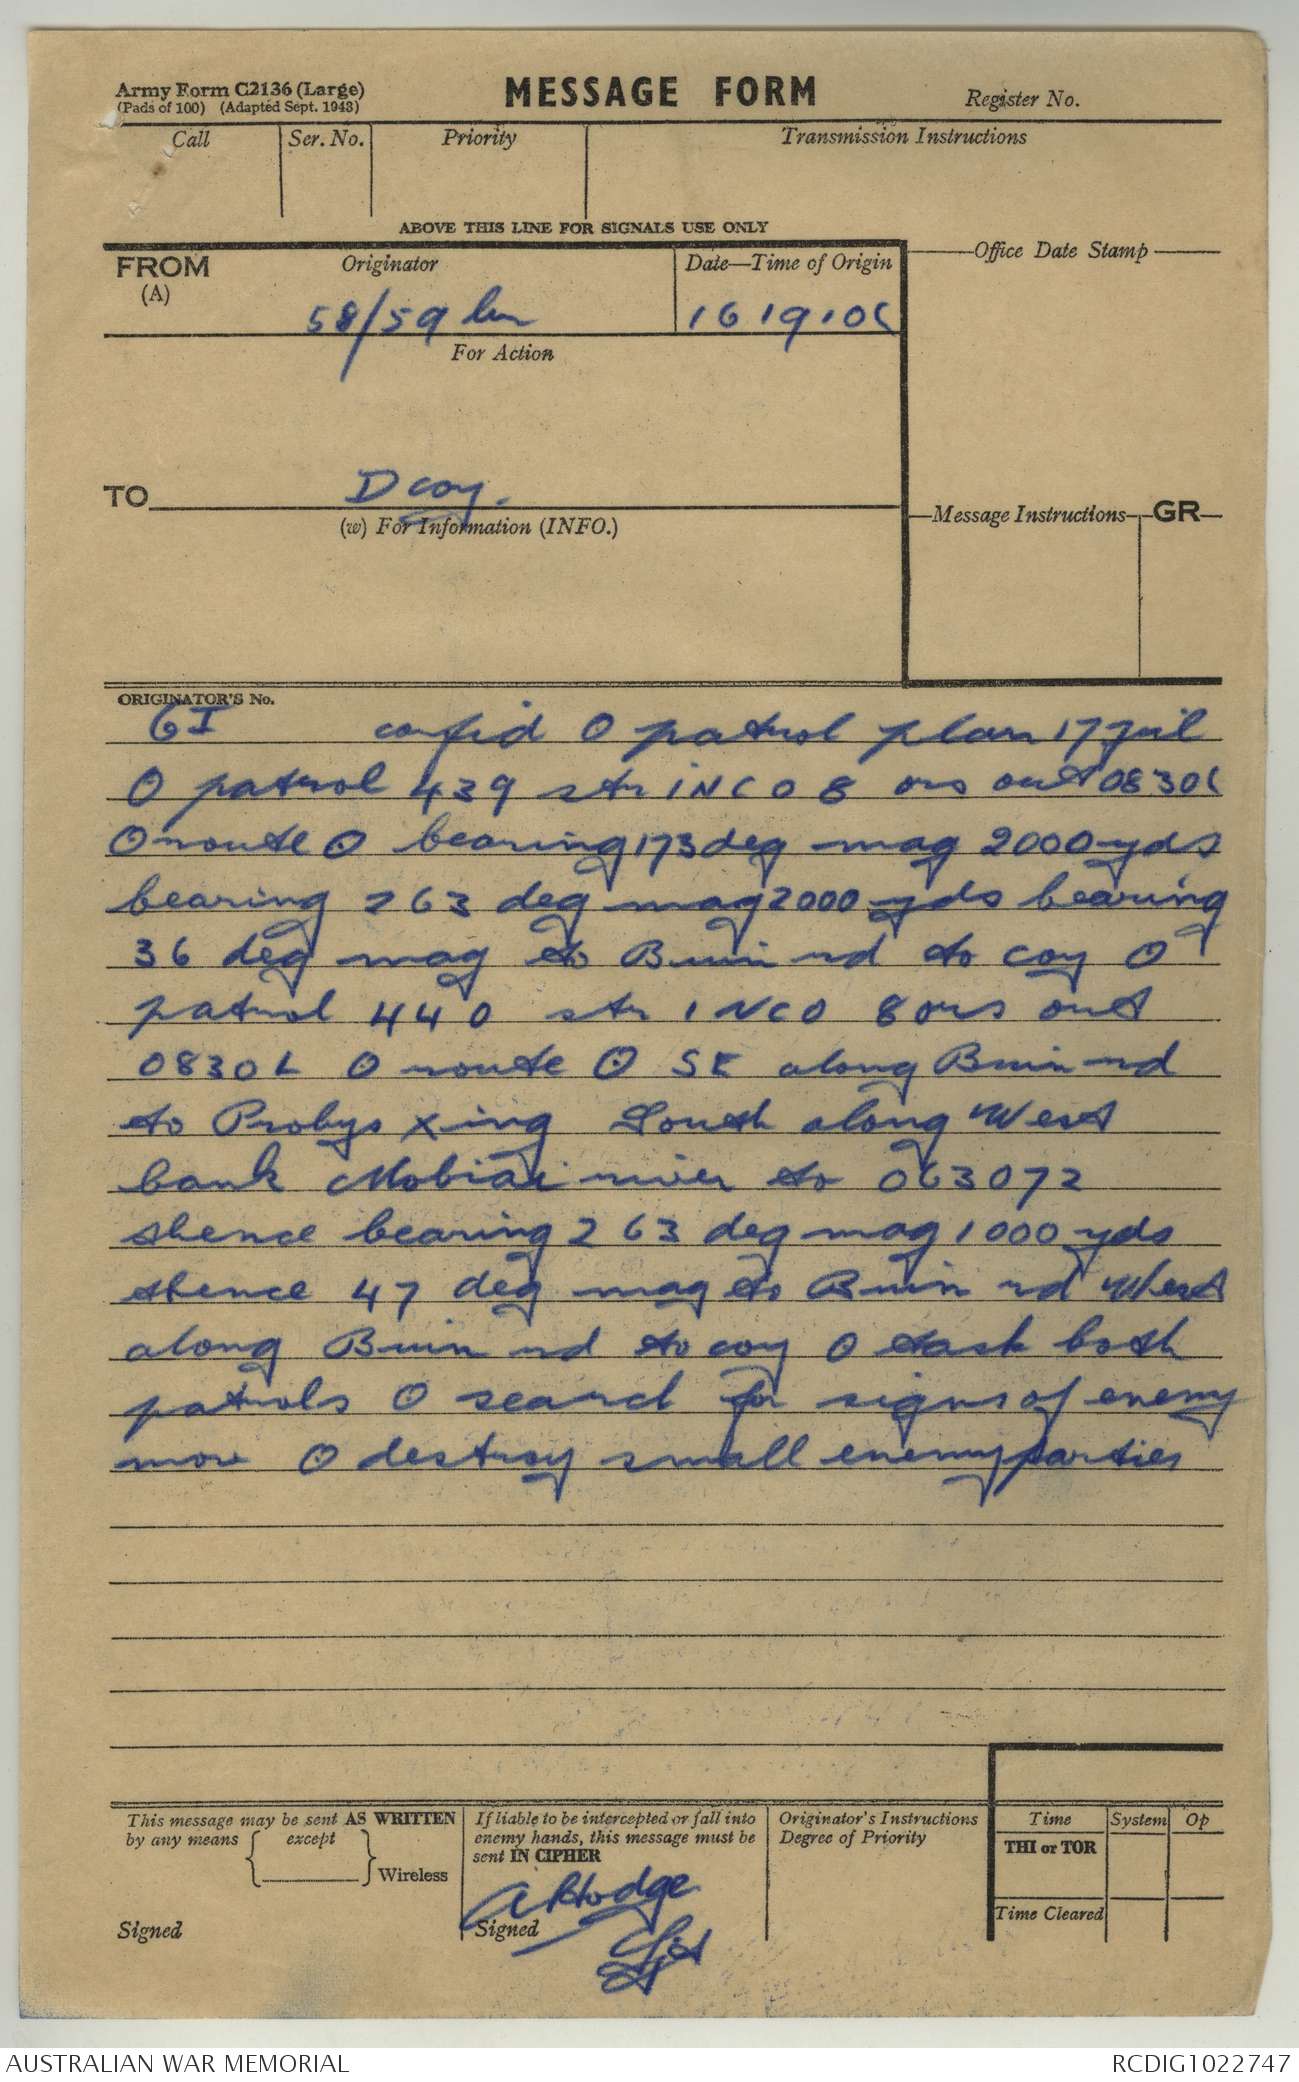 Army Form C2136 (Large)
(Pads of 100) (Adapted Sept. 1943)
MESSAGE FORM
Register No.
Call
Ser. No.
Priority
Transmission Instructions
ABOVE THIS LINE FOR SIGNALS USE ONLY
FROM
(A)
Originator
58/59 bn
Date—Time of Origin
16 1910
Office Date Stamp
For Action
TO
D coy.
(w) For Information (INFO.)
Message Instructions
GR
ORIGINATOR'S No.
GI confid O patrol plan 17 Jul
O patrol 439 str 1 NCO 8 ors out 0830
O route O bearing 173 deg mag 2000 yds
bearing 263 deg mag 2000 yds bearing
36 deg mag to Buin rd to coy O
patrol 440 str 1 NCO 8 ors out
0830L O route O SE along Buin rd
to Probys Xing South along West
bank Mobiai river to 063072
thence bearing 263 deg mag 1000 yds
thence 47 deg mag to Buin rd West
along Buin rd to coy O task both
patrols O search for signs of enemy
mov O destroy small enemy parties
This message may be sent AS WRITTEN
by any means except
Wireless
Signed
If liable to be intercepted or fall into
enemy hands, this message must be
sent IN CIPHER
Hodge
Signed
Originator's Instructions
Degree of Priority
Time
System
Op
THI or TOR
Time Cleared
AUSTRALIAN WAR MEMORIAL
RCDIG1022747